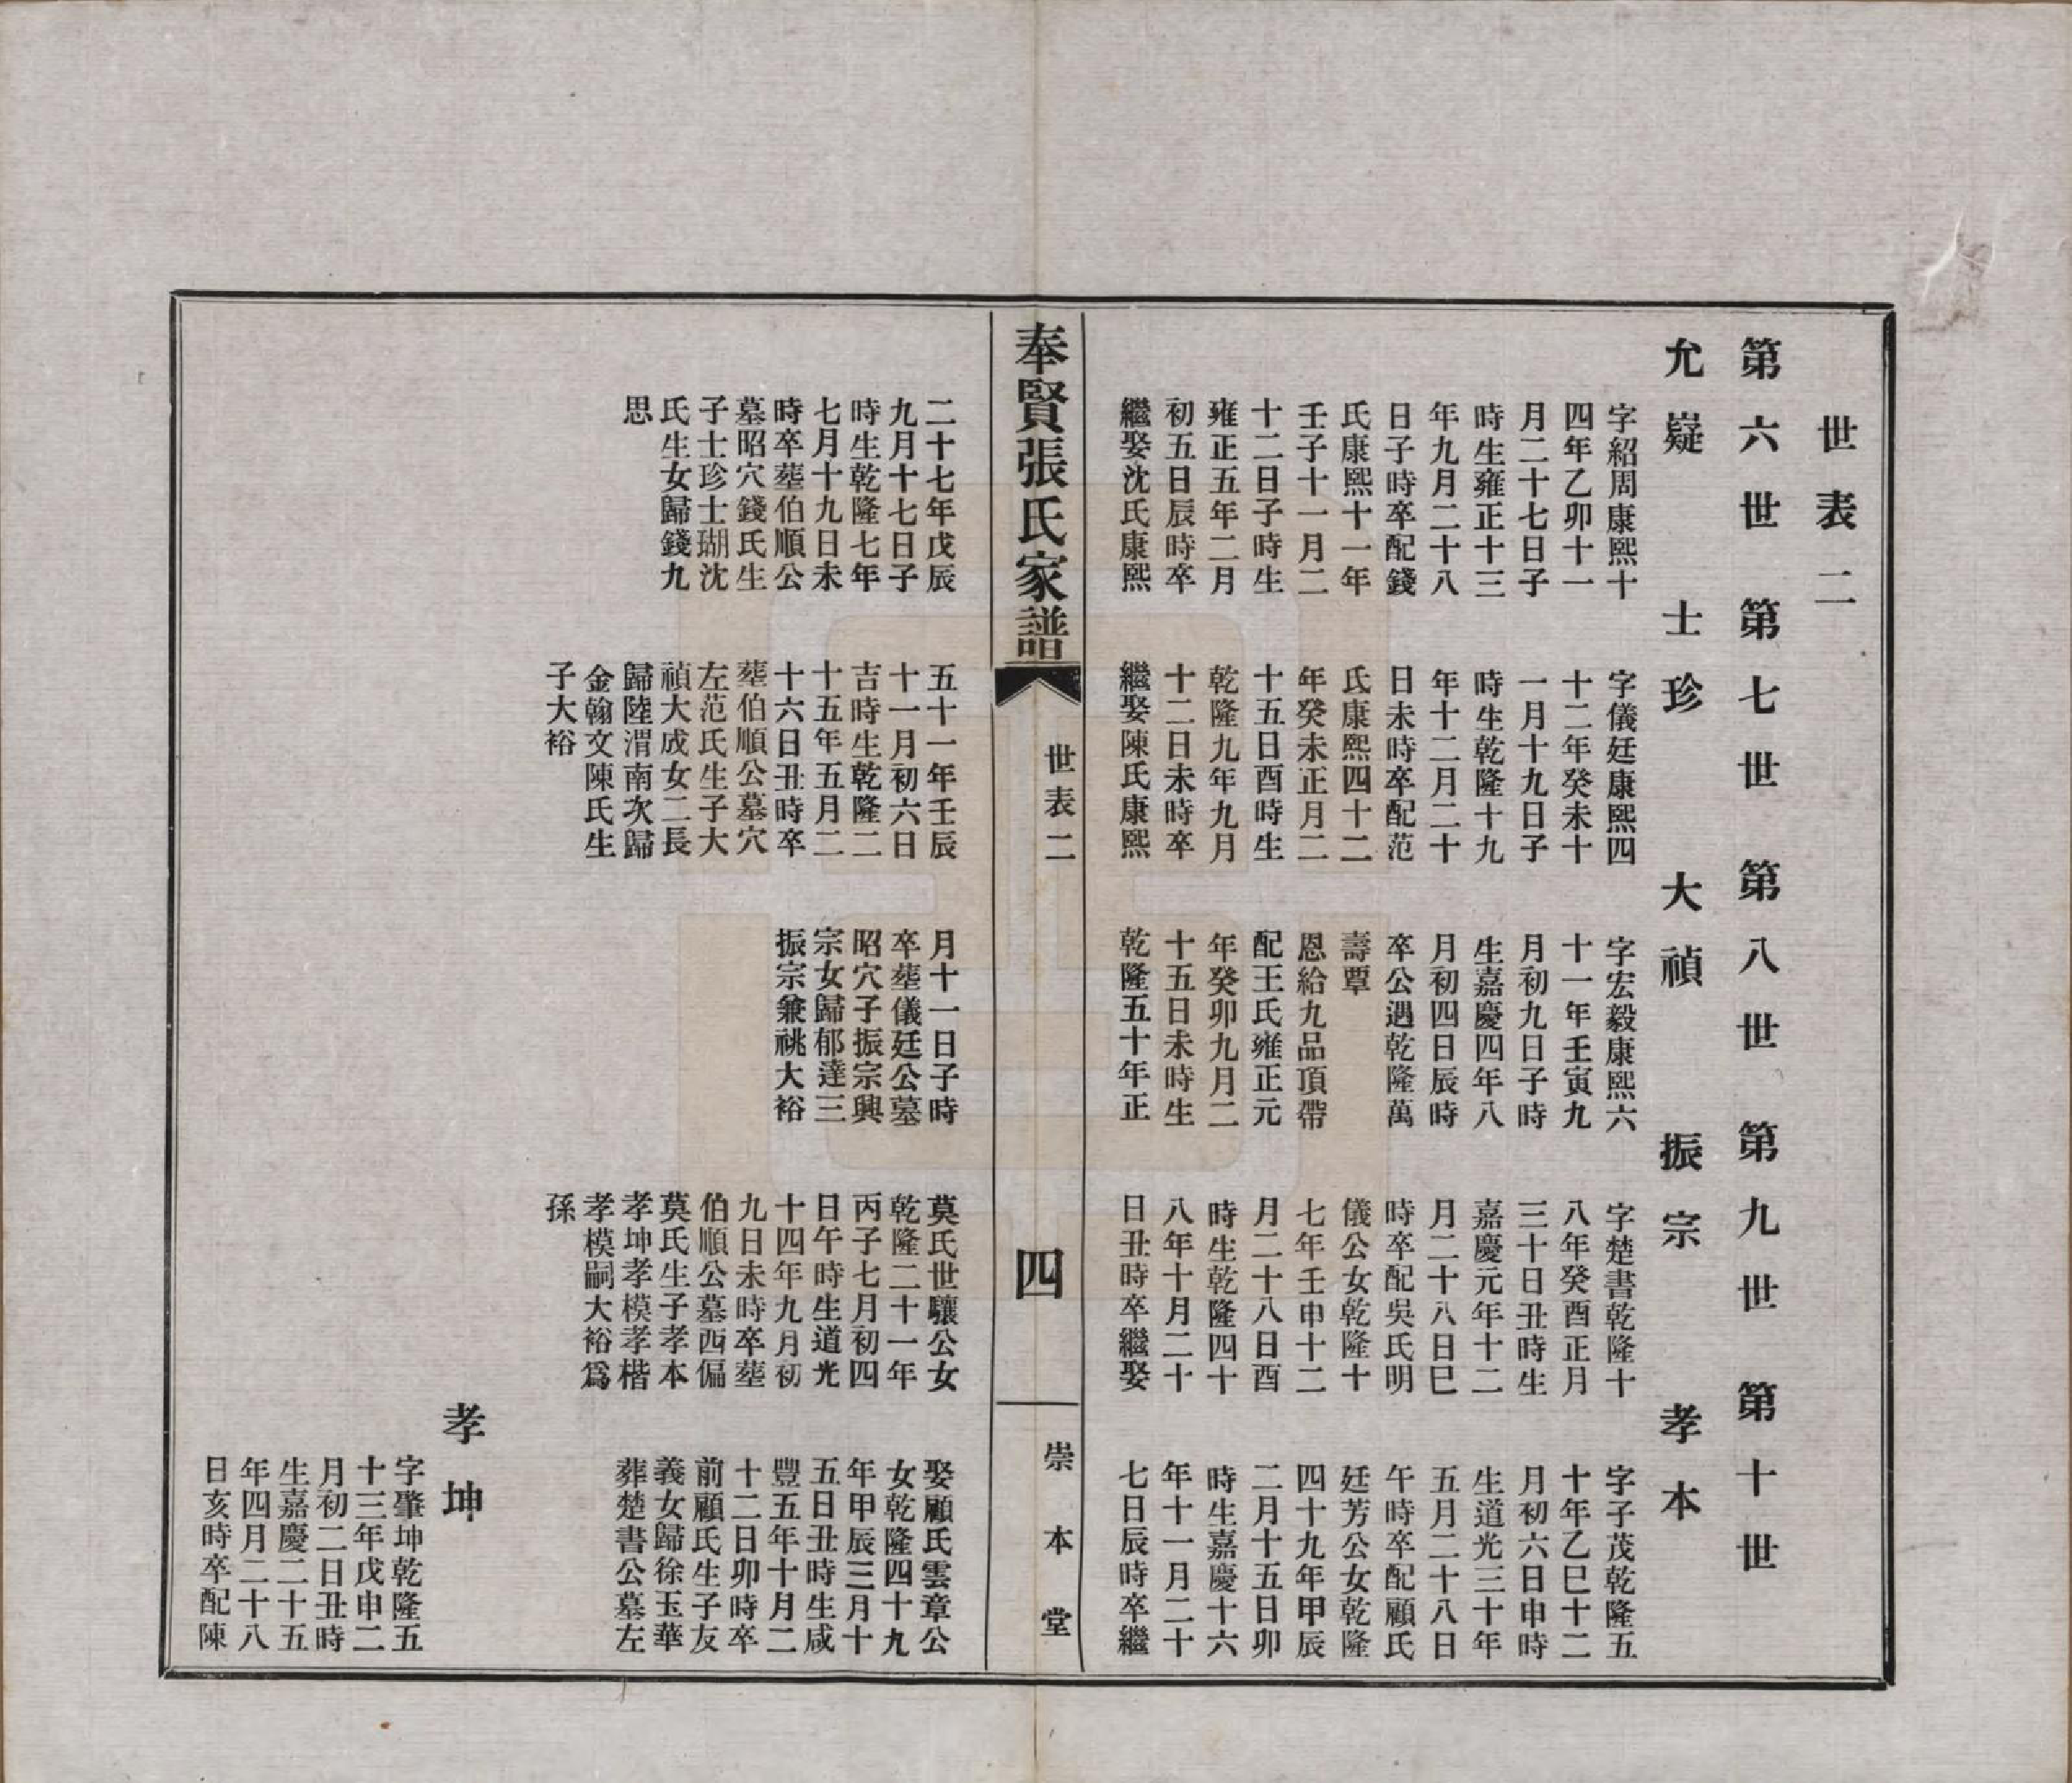 世表二
第六世　第七世　第八世　第九世　第十世
允嶷　士珍　大禎　振宗　孝本
字紹周康熙十
四年乙卯十一
月二十七日子
時生雍正十三
年九月二十八
日子時卒配錢
氏康熙十一年
壬子十一月二
十二日子時生
雍正五年二月
初五日辰時卒
繼娶沈氏康熙
字儀廷康熙四
十二年癸未十
一月十九日子
時生乾隆十九
年十二月二十
日未時卒配范
氏康熙四十二
年癸未正月二
十五日酉時生
乾隆九年九月
十二日未時卒
繼娶陳氏康熙
字宏毅康熙六
十一年壬寅九
月初九日子時
生嘉慶四年八
月初四日辰時
卒公遇乾隆萬
壽覃
恩給九品頂帶
配王氏雍正元
年癸卯九月二
十五日未時生
乾隆五十年正
字楚書乾隆十
八年癸酉正月
三十日丑時生
嘉慶元年十二
月二十八日巳
時卒配吳氏明
儀公女乾隆十
七年壬申十二
月二十八日酉
時生乾隆四十
八年十月二十
日丑時卒繼娶
字子茂乾隆五
十年乙巳十二
月初六日申時
生道光三十年
五月二十八日
午時卒配顧氏
廷芳公女乾隆
四十九年甲辰
二月十五日卯
時生嘉慶十六
年十一月二十
七日辰時卒繼
奉賢張氏家譜
世表二
四
崇本堂
二十七年戊辰
九月十七日子
時生乾隆七年
七月十九日未
時卒塟伯順公
墓昭穴錢氏生
子士珍士瑚沈
氏生女歸錢九
思
五十一年壬辰
十一月初六日
吉時生乾隆二
十五年五月二
十六日丑時卒
塟伯順公墓穴
左范氏生子大
禎大成女二長
歸陸渭南次歸
金翰文陳氏生
子大裕
月十一日子時
卒塟儀廷公墓
昭穴子振宗興
宗女歸郁達三
振宗兼祧大裕
莫氏世驤公女
乾隆二十一年
丙子七月初四
日午時生道光
十四年九月初
九日未時卒塟
伯順公墓西偏
莫氏生子孝本
孝坤孝模孝楷
孝模嗣大裕爲
孫
娶顧氏雲章公
女乾隆四十九
年甲辰三月十
五日丑時生咸
豐五年十月二
十二日卯時卒
前顧氏生子友
義女歸徐玉華
葬楚書公墓左
孝坤
字肇坤乾隆五
十三年戊申二
月初二日丑時
生嘉慶二十五
年四月二十八
日亥時卒配陳